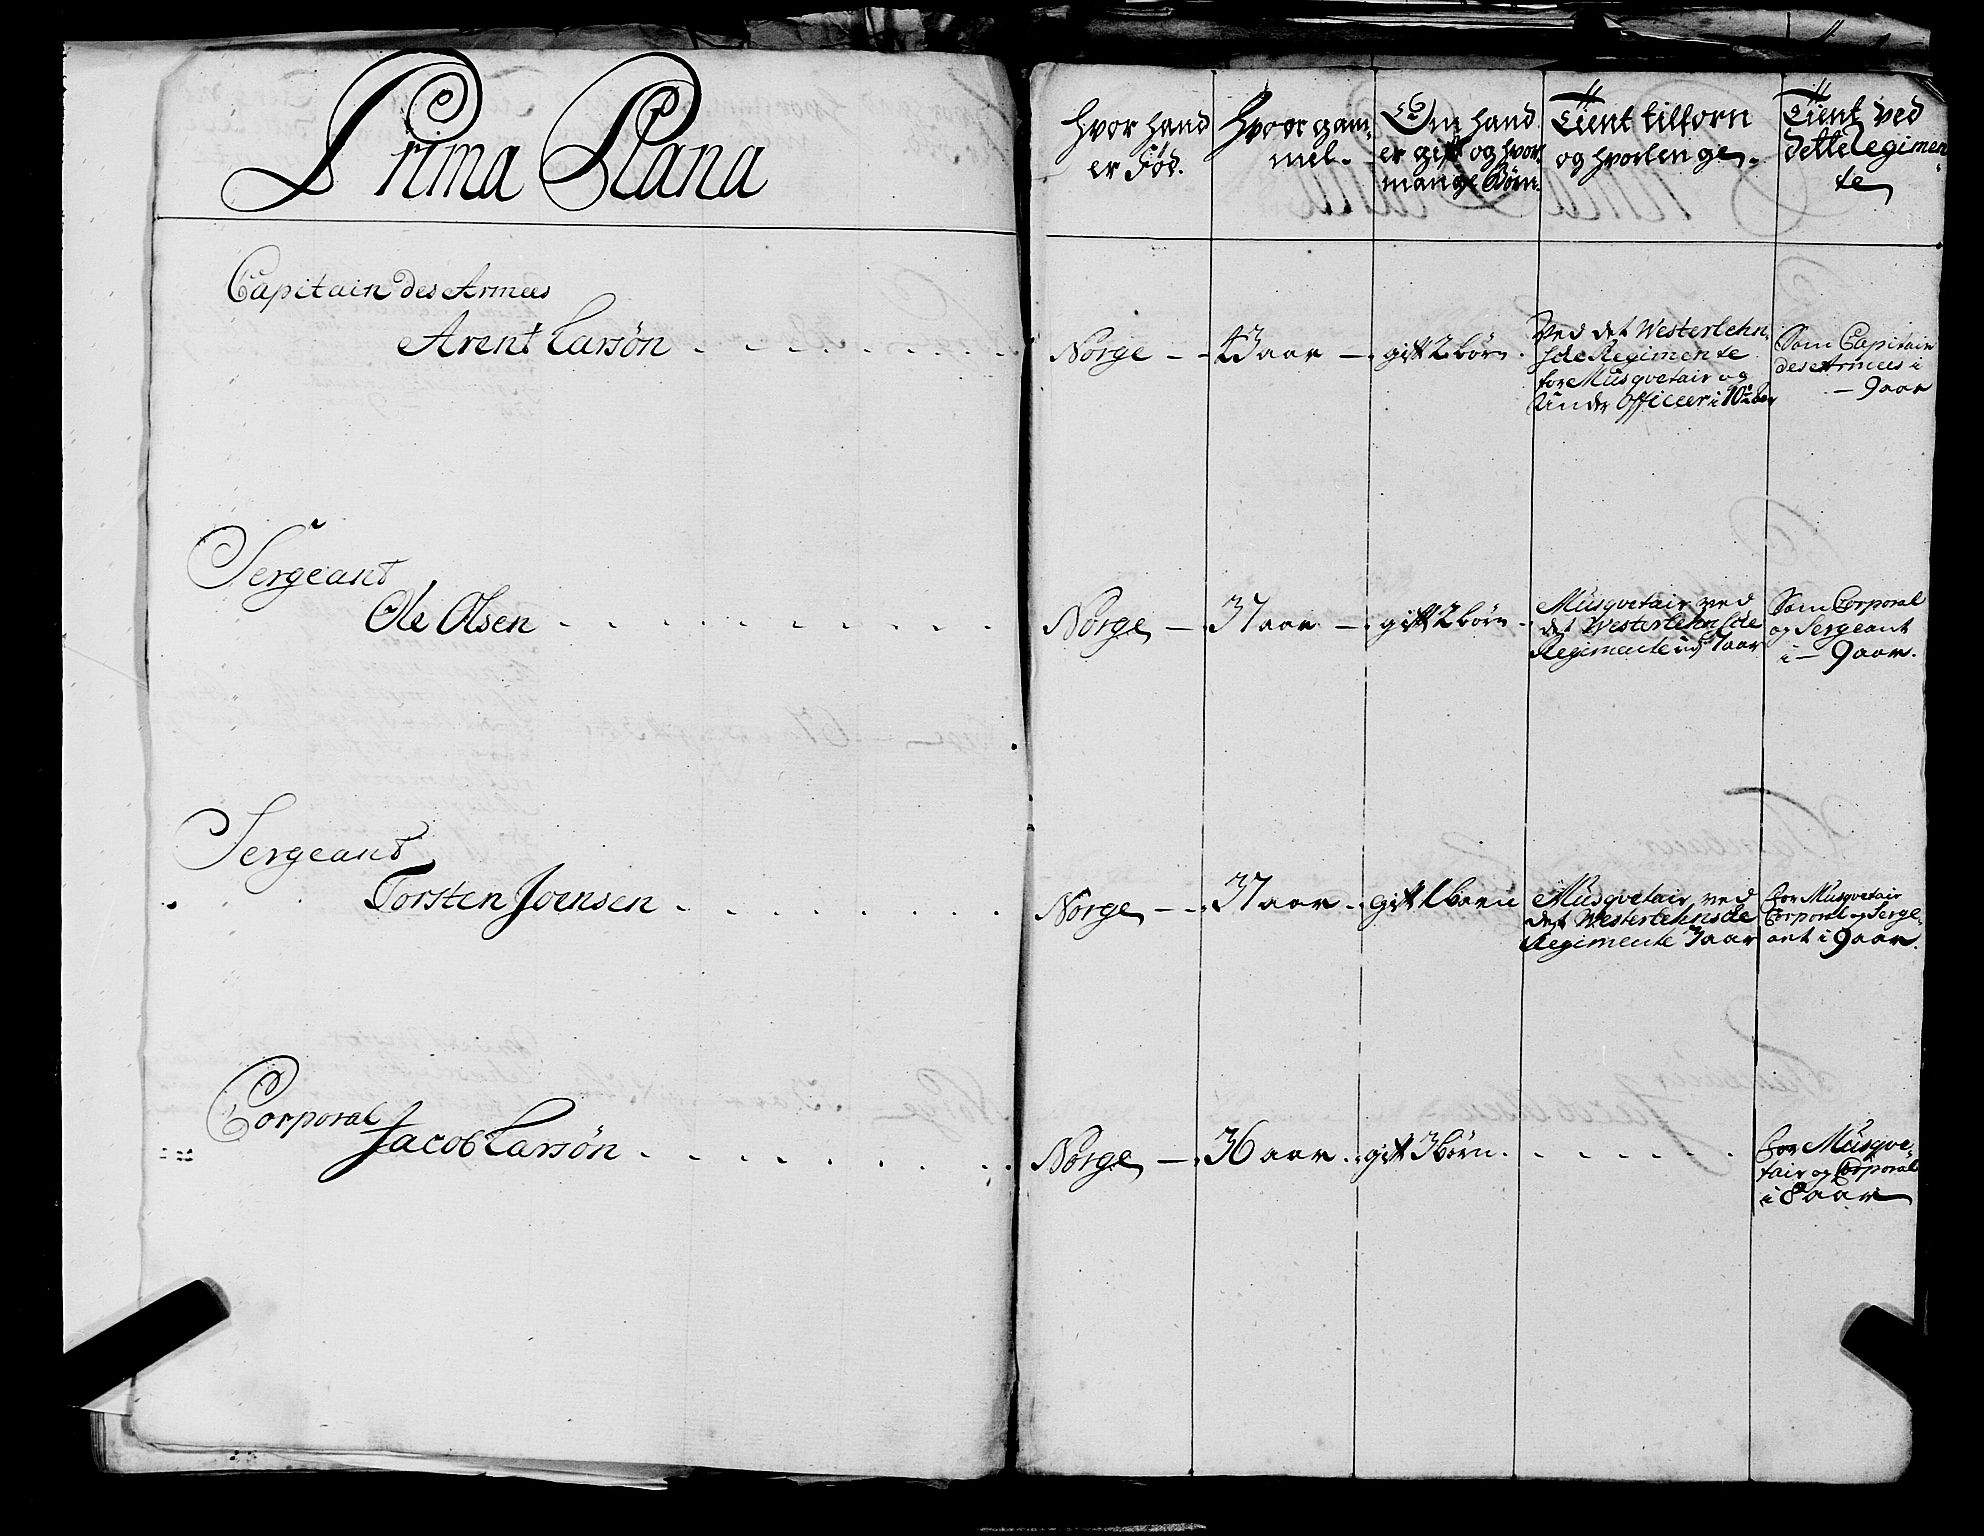 Prima Plana
Hvor hand
er Fød.
Hvor gam-
mel.
Om hand
er gift og hvor
mange Børn.
Tient tilforn
og hvorlenge.
Tient ved
dette Regimen-
te
Capitain des Armees
Arent Larsön
Norge
43 aar
gift 2 börn.
Ved det Westerlehn-
sche Regimente
for Musqvetair og
Under Officeer i 10 aar
Som Capitain
des Armees i
9 aar
Sergeant
Ole Olsen
Norge
37 aar
gift 2 börn
Musqvetair ved
det Westerlehnsche
Regimente 7 aar
Som Corporal
og Sergeant
i 9 aar.
Sergeant
Torsten Joensen
Norge
37 aar
gift 1 barn
Musqvetair ved
det Westerlehnsche
Regimente 3 aar
for Musqvetair
Corporal og Serge-
ant i 9 aar.
Corporal
Jacob Larsön
Norge
36 aar
gift 3 börn
for Musqve-
tair og Corporal
i 8 aar